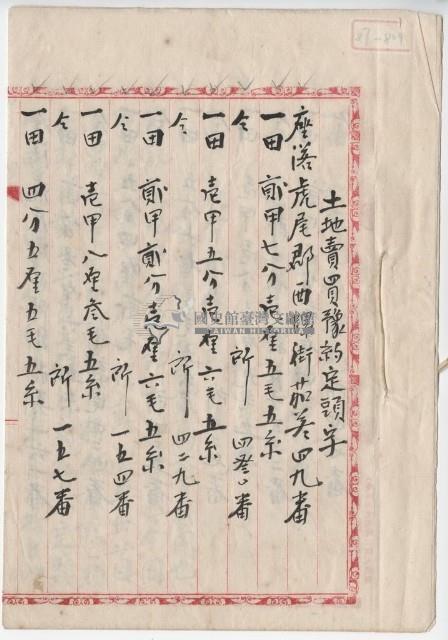 土地賣買豫約定頭字
座落虎尾郡西螺街茄苳四九番
一田 貳甲七分壹厘五毛五糸
仝 所 四叁〇番
一田 壹甲五分壹厘六毛五糸
仝 所 四二九番
一田 貳甲貳分壹厘六毛五糸
仝 所 一五四番
一田 壹甲八厘叁毛五糸
仝 所 一五七番
一田 四分五厘五毛五糸
國史館臺灣文獻館
TAIWAN HISTORICA